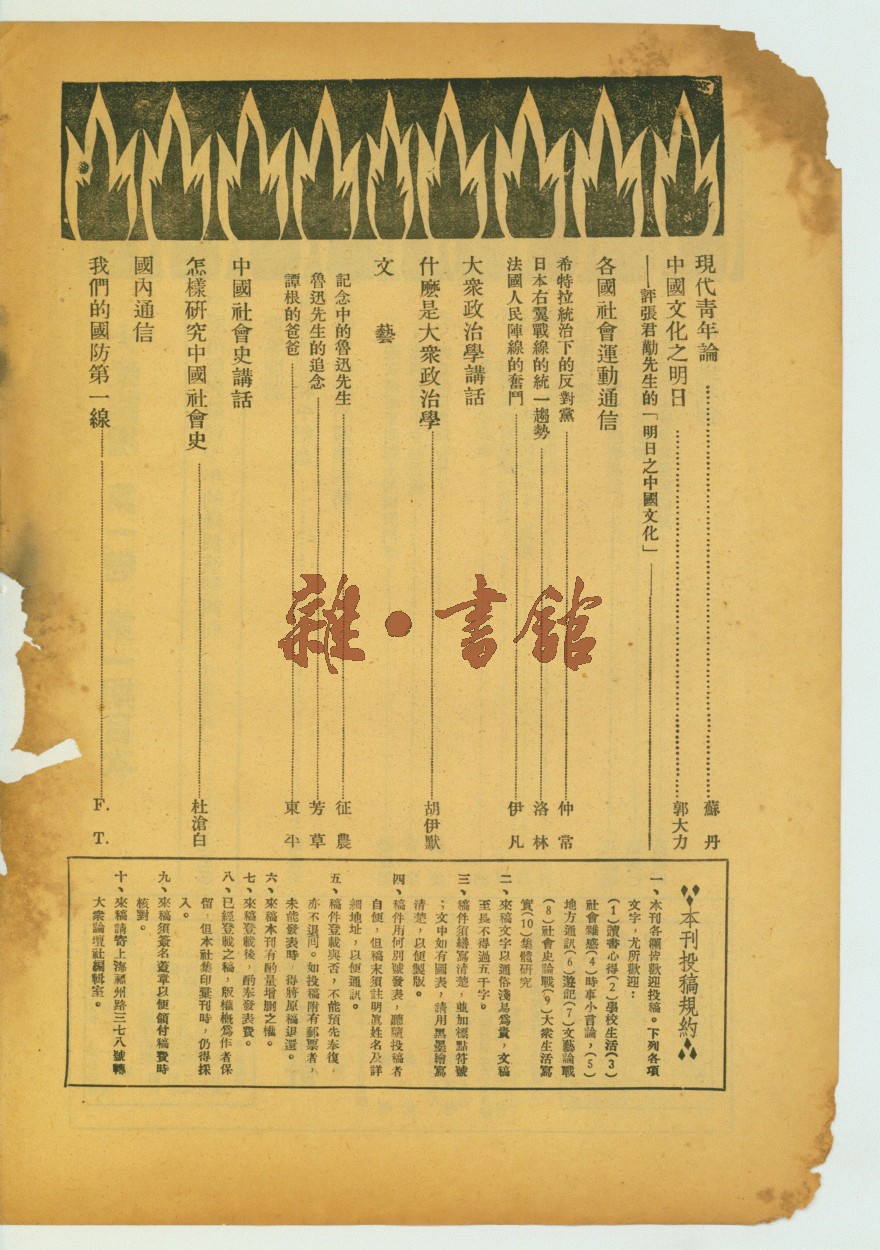 現代青年論……蘇丹
中國文化之明日……郭大力
——評張君勱先生的「明日之中國文化」——
各國社會運動通信
希特拉統治下的反對黨……仲常
日本右翼戰線的統一趨勢……洛林
法國人民陣線的奮鬥……伊凡
大衆政治學講話
什麽是大衆政治學……胡伊默
文藝
記念中的魯迅先生……征農
魯迅先生的追念……芳草
譚根的爸爸……東平
中國社會史講話
怎樣研究中國社會史……杜滄白
國內通信
我們的國防第一線……F. T.
雜·書館
本刊投稿規約
一、本刊各欄皆歡迎投稿。下列各項
文字，尤所歡迎：
(1)讀書心得(2)學校生活(3)
社會雜感(4)時事小言論，(5)
地方通訊(6)遊記(7)文藝論戰
(8)社會史論戰(9)大衆生活寫
實(10)集體研究
二、來稿文字以通俗淺易爲貴，文稿
至長不得過五千字。
三、稿件須繕寫清楚，並加標點符號
；文中如有圖表，請用黑墨繪寫
清楚，以便製版。
四、稿件用何別號發表，聽隨投稿者
自便，但稿末須註明眞姓名及詳
細地址，以便通訊。
五、稿件登載與否，不能預先奉復，
亦不退囘。如投稿附有郵票者，
未能發表時，得將原稿退還。
六、來稿本刊有酌量增刪之權。
七、來稿登載後，酌奉發表費。
八、已經登載之稿，版權槪爲作者保
留，但本社集印彙刊時，仍得採
入。
九、來稿須簽名蓋章以便領付稿費時
核對。
十、來稿請寄上海福州路三七八號轉
大衆論壇社編輯室。